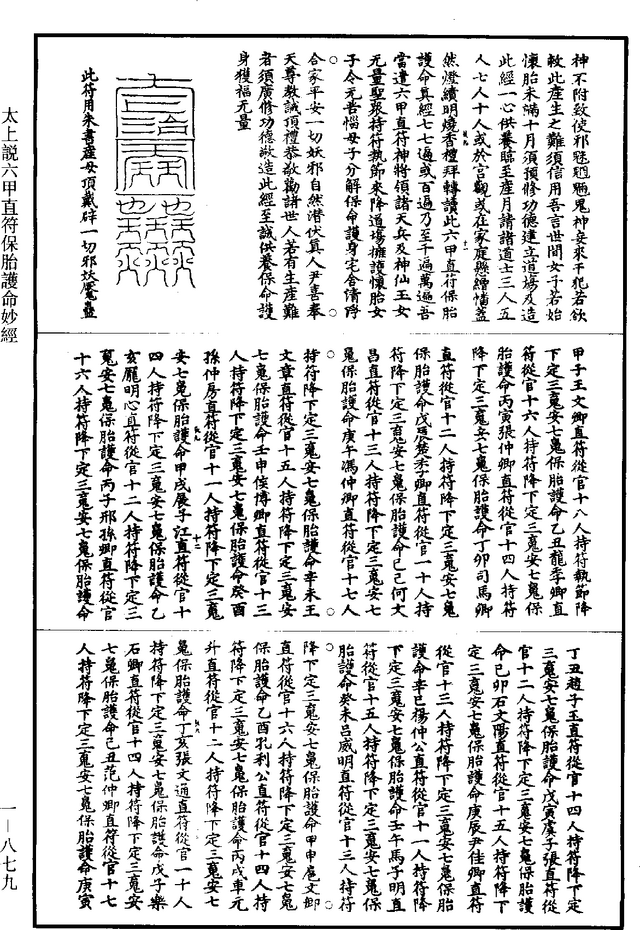 神不附致使邪魅魍魎鬼神妄來干犯若欲
救此產生之難須信用吾言世間女子若始
懷胎未滿十月須預修功德建立道場及造
此經一心供養臨至產月請諸道士三人五
人七人十人或於宮觀或在家庭懸繒幡蓋
然燈續明燒香禮拜轉讀此六甲直符保胎
護命真經七七遍或百遍乃至千遍萬遍吾
當遣六甲直符神將領諸天兵及神仙玉女
无量聖眾持符執節來降道場擁護懷胎女
子令无苦惱母子分解保命護身宅舍清淨
合家平安一切妖邪自然潛伏真人尹喜奉
天尊教誡頂禮恭敬勸諸世人若有生產難
者須廣修功德敬造此經至誠供養保命護
身獲福无量
此符用朱書產母頂戴辟一切邪妖魘蠱
甲子王文卿直符從官十八人持符執節降
下定三魂安七魄保胎護命乙丑龍季卿直
符從官十六人持符降下定三魂安七魄保
胎護命丙寅張仲卿直符從官十四人持符
降下定三魂安七魄保胎護命丁卯司馬卿
直符從官十二人持符降下定三魂安七魄
保胎護命戊辰季楚卿直符從官一十人持
符降下定三魂安七魄保胎護命己巳何文
昌直符從官十三人持符降下定三魂安七
魄保胎護命庚午馮仲卿直符從官十七人
持符降下定三魂安七魄保胎護命辛未王
文章直符從官十五人持符降下定三魂安
七魄保胎護命壬申侯博卿直符從官十三
人持符降下定三魂安七魄保胎護命癸酉
孫仲房直符從官十一人持符降下定三魂
安七魄保胎護命甲戌展子江直符從官十
四人持符降下定三魂安七魄保胎護命乙
亥龐明心直符從官十二人持符降下定三
魂安七魄保胎護命丙子邢孫卿直符從官
十六人持符降下定三魂安七魄保胎護命
丁丑趙子玉直符從官十四人持符降下定
三魂安七魄保胎護命戊寅虞子張直符從
官十二人持符降下定三魂安七魄保胎護
命己卯石文陽直符從官十五人持符降下
定三魂安七魄保胎護命庚辰尹佳卿直符
從官十三人持符降下定三魂安七魄保胎
護命辛巳楊仲公直符從官十一人持符降
下定三魂安七魄保胎護命壬午馬子明直
符從官十五人持符降下定三魂安七魄保
胎護命癸未呂威明直符從官十三人持符
降下定三魂安七魄保胎護命甲申扈文卿
直符從官十六人持符降下定三魂安七魄
保胎護命乙酉孔利公直符從官十四人持
符降下定三魂安七魄保胎護命丙戌車元
升直符從官十二人持符降下定三魂安七
魄保胎護命丁亥張文通直符從官一十人
持符降下定三魂安七魄保胎護命戊子樂
石卿直符從官十四人持符降下定三魂安
七魄保胎護命己丑范仲卿直符從官十七
人持符降下定三魂安七魄保胎護命庚寅
太上說六甲直符保胎護命妙經
一—八七九